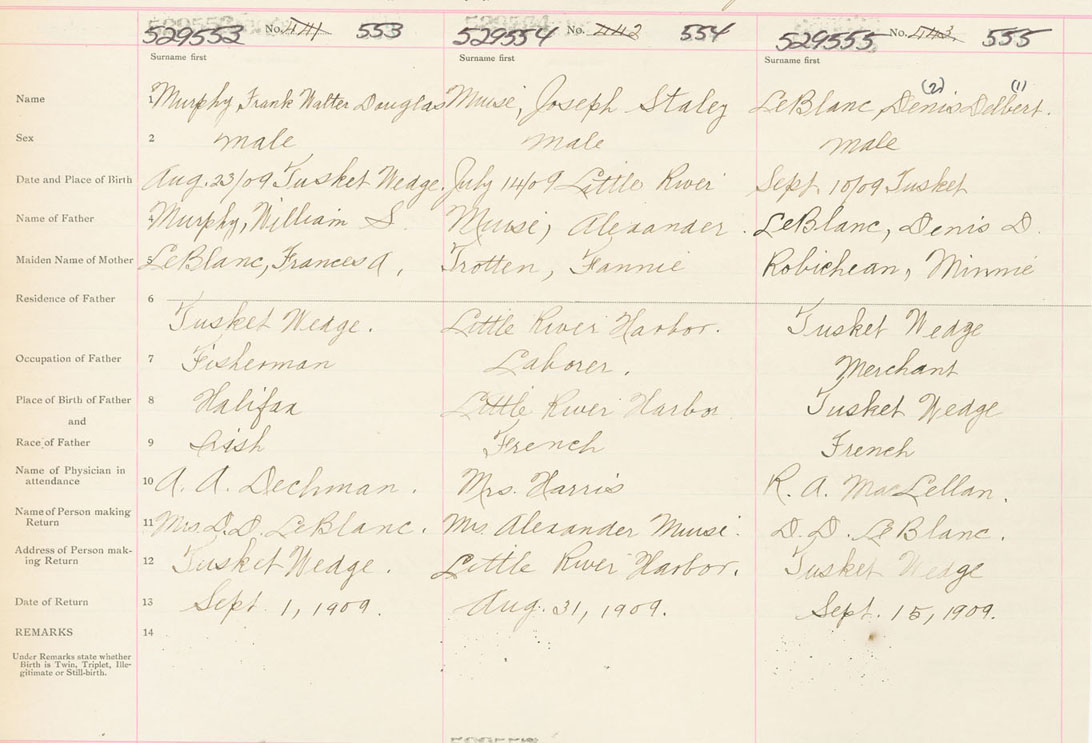 529553 No. 441 553 529554 No. 442 554 529555 No. 443 555
Surname first Surname first Surname first
(2) (1)
Name 1 Murphy, Frank Walter Douglas Muise, Joseph Staley LeBlanc, Denis Delbert.
Sex 2 male male male
Date and Place of Birth Aug. 23/09 Tusket Wedge. July 14/09 Little River Sept 10/09 Tusket
Name of Father 4 Murphy, William S. Muise, Alexander. LeBlanc, Denis D.
Maiden Name of Mother 5 LeBlanc, Frances A, Trotten, Fannie Robichean, Minnie
Residence of Father 6
Tusket Wedge. Little River Harbor. Tusket Wedge
Occupation of Father 7 Fisherman Laborer. Merchant
Place of Birth of Father 8 Halifax Little River Harbor Tusket Wedge
and
Race of Father 9 Irish French French
Name of Physician in
attendance 10 A. A. Dechman. Mrs. Harris R. A. MacLellan.
Name of Person making
Return 11 Mrs. D. D. LeBlanc. Mrs. Alexander Muise. D. D. LeBlanc.
Address of Person mak-
ing Return 12 Tusket Wedge. Little River Harbor. Tusket Wedge
Date of Return 13 Sept. 1, 1909. Aug. 31, 1909. Sept. 15, 1909.
REMARKS 14
Under Remarks state whether
Birth is Twin, Triplet, Ille-
gitimate or Still-birth.